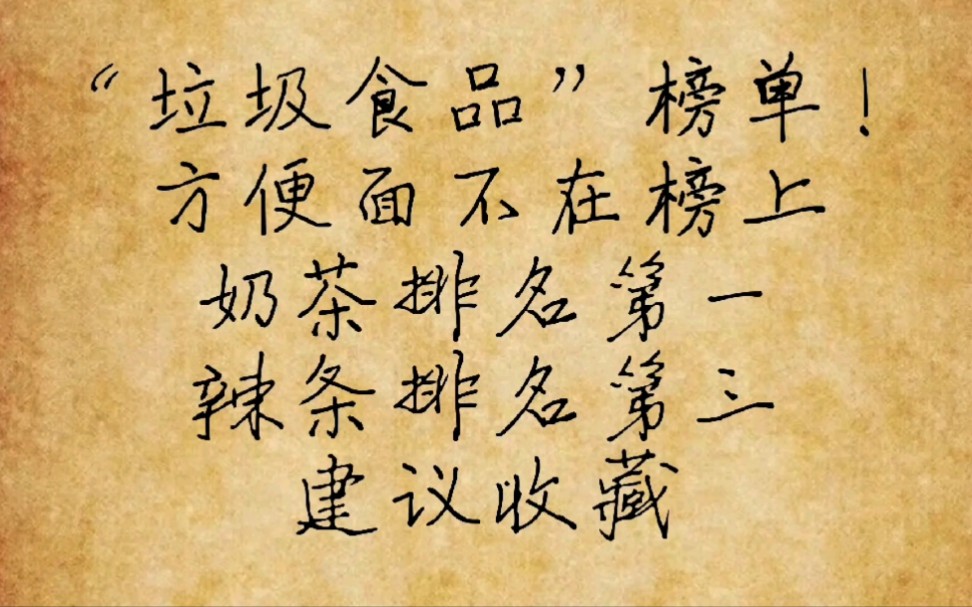 “垃圾食品”榜单！
方便面不在榜上
奶茶排名第一
辣条排名第三
建议收藏